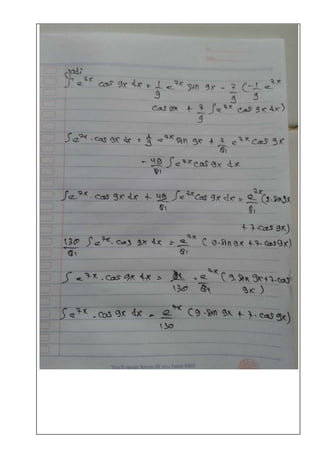 jadi
∫ e^7x cos 9x dx = 1/9 e^7x sin 9x - 7/9 (-1/9 e^7x
cos 9x + 7/9 ∫ e^7x cos 9x dx)
∫ e^7x . cos 9x dx = 1/9 e^7x sin 9x + 7/81 e^7x cos 9x
- 49/81 ∫ e^7x cos 9x dx
∫ e^7x . cos 9x dx + 49/81 ∫ e^7x cos 9x dx = e^7x/81 (9. sin 9x
+ 7 cos 9x)
130/81 ∫ e^7x . cos 9x dx = e^7x/81 (9. sin 9x + 7. cos 9x)
∫ e^7x . cos 9x dx = 81/130 . e^7x/81 (9. sin 9x + 7. cos
9x)
∫ e^7x . cos 9x dx = e^7x/130 (9. sin 9x + 7. cos 9x)